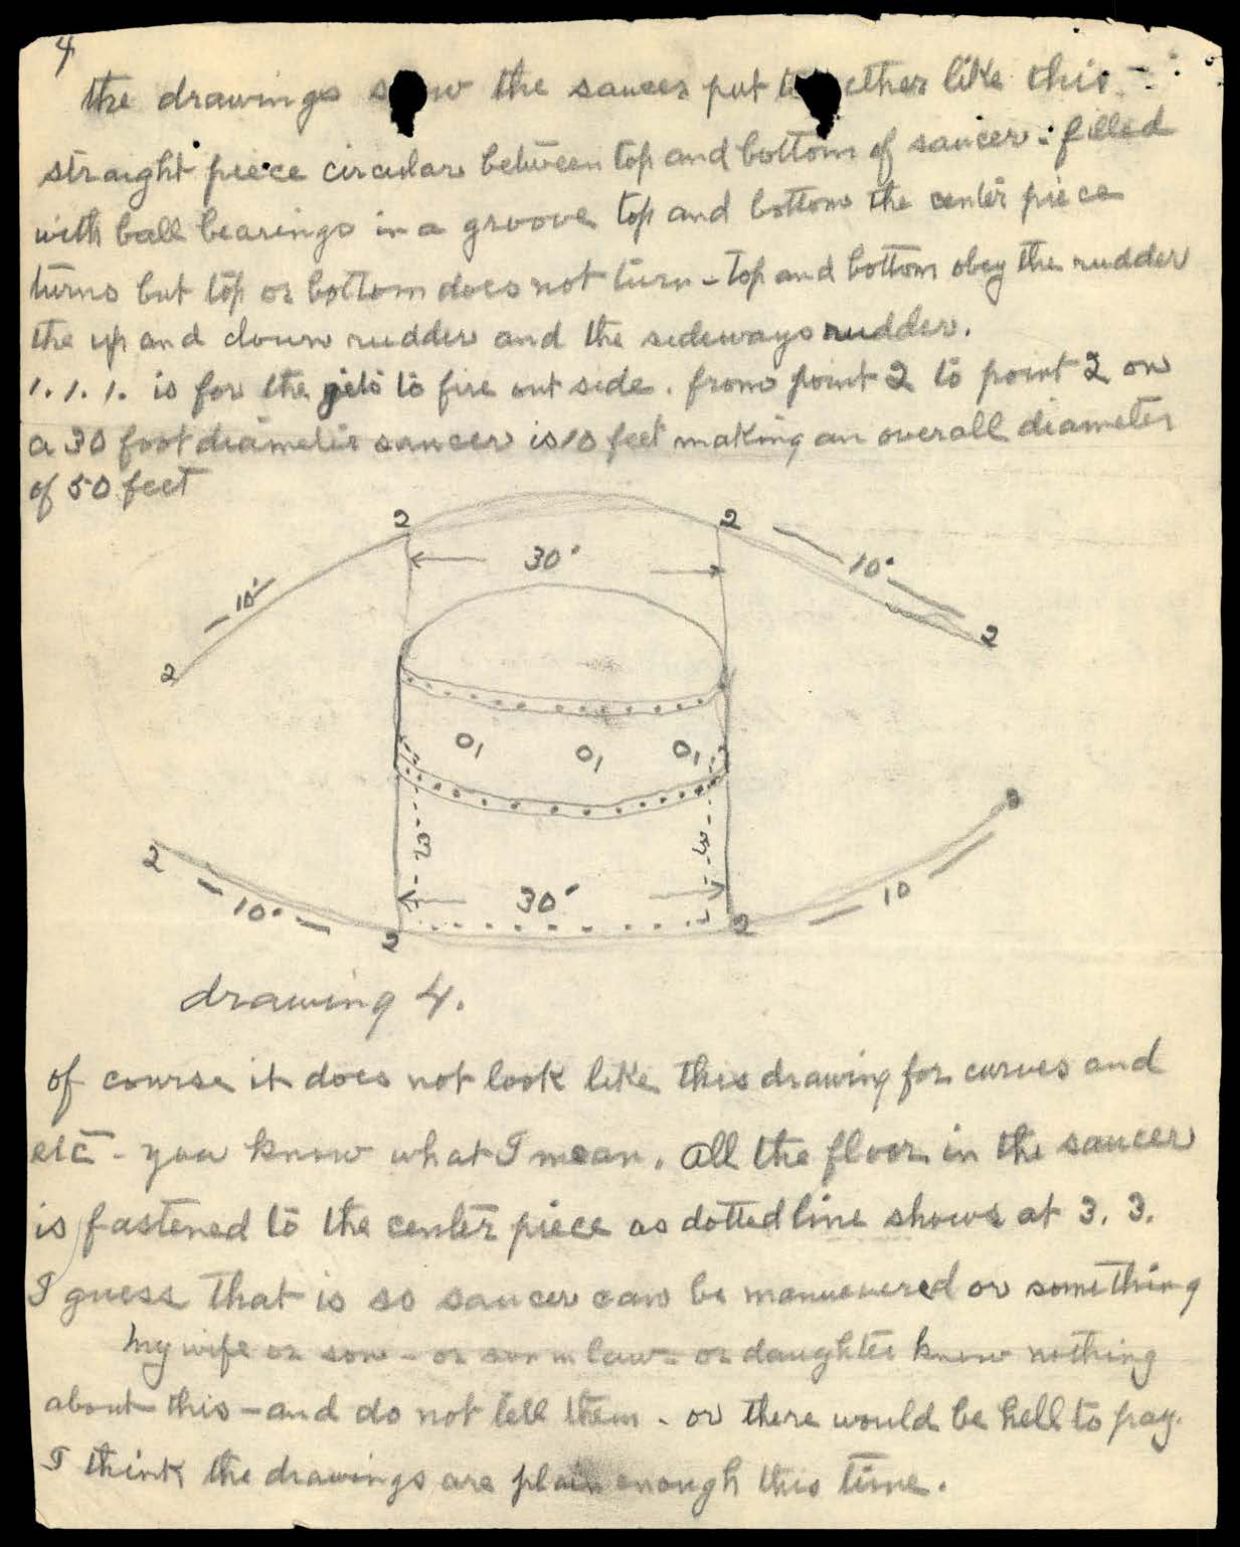 4
the drawings show the saucer put together like this -
straight piece circular between top and bottom of saucer - filled
with ball bearings in a groove top and bottom the center piece
turns but top or bottom does not turn - top and bottom obey the rudder
the up and down rudder and the sideways rudder.
1. 1. 1. is for the jets to fire out side. from point 2 to point 2 on
a 30 foot diameter saucer is 10 feet making an overall diameter
of 50 feet
2 2
30'
10' 10'
2 2
01 01 01
2 2
3 3
30'
10' 10
2 2
drawing 4.
of course it does not look like this drawing for curves and
etc - you know what I mean. all the floor in the saucer
is fastened to the center piece as dotted line shows at 3. 3.
I guess that is so saucer can be manuevered or something
My wife or son - or son in law - or daughter know nothing
about this - and do not tell them - or there would be hell to pay.
I think the drawings are plain enough this time.